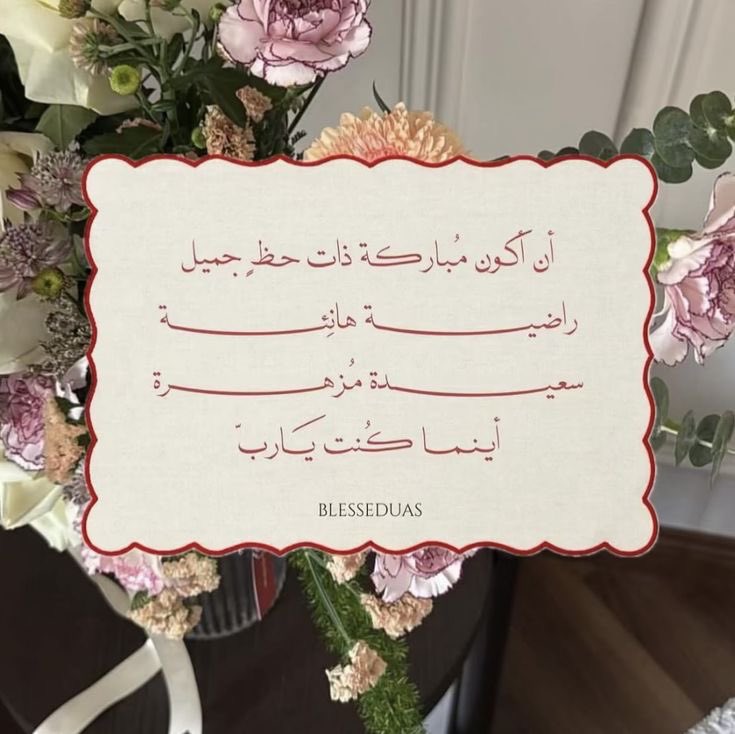 أن أكون مُباركة ذات حظٍ جميل
راضيـــــة هانِئـــــة
سعيـــــدة مُزهـــــرة
أينمـا كُنت يَـاربّ
BLESSEDUAS